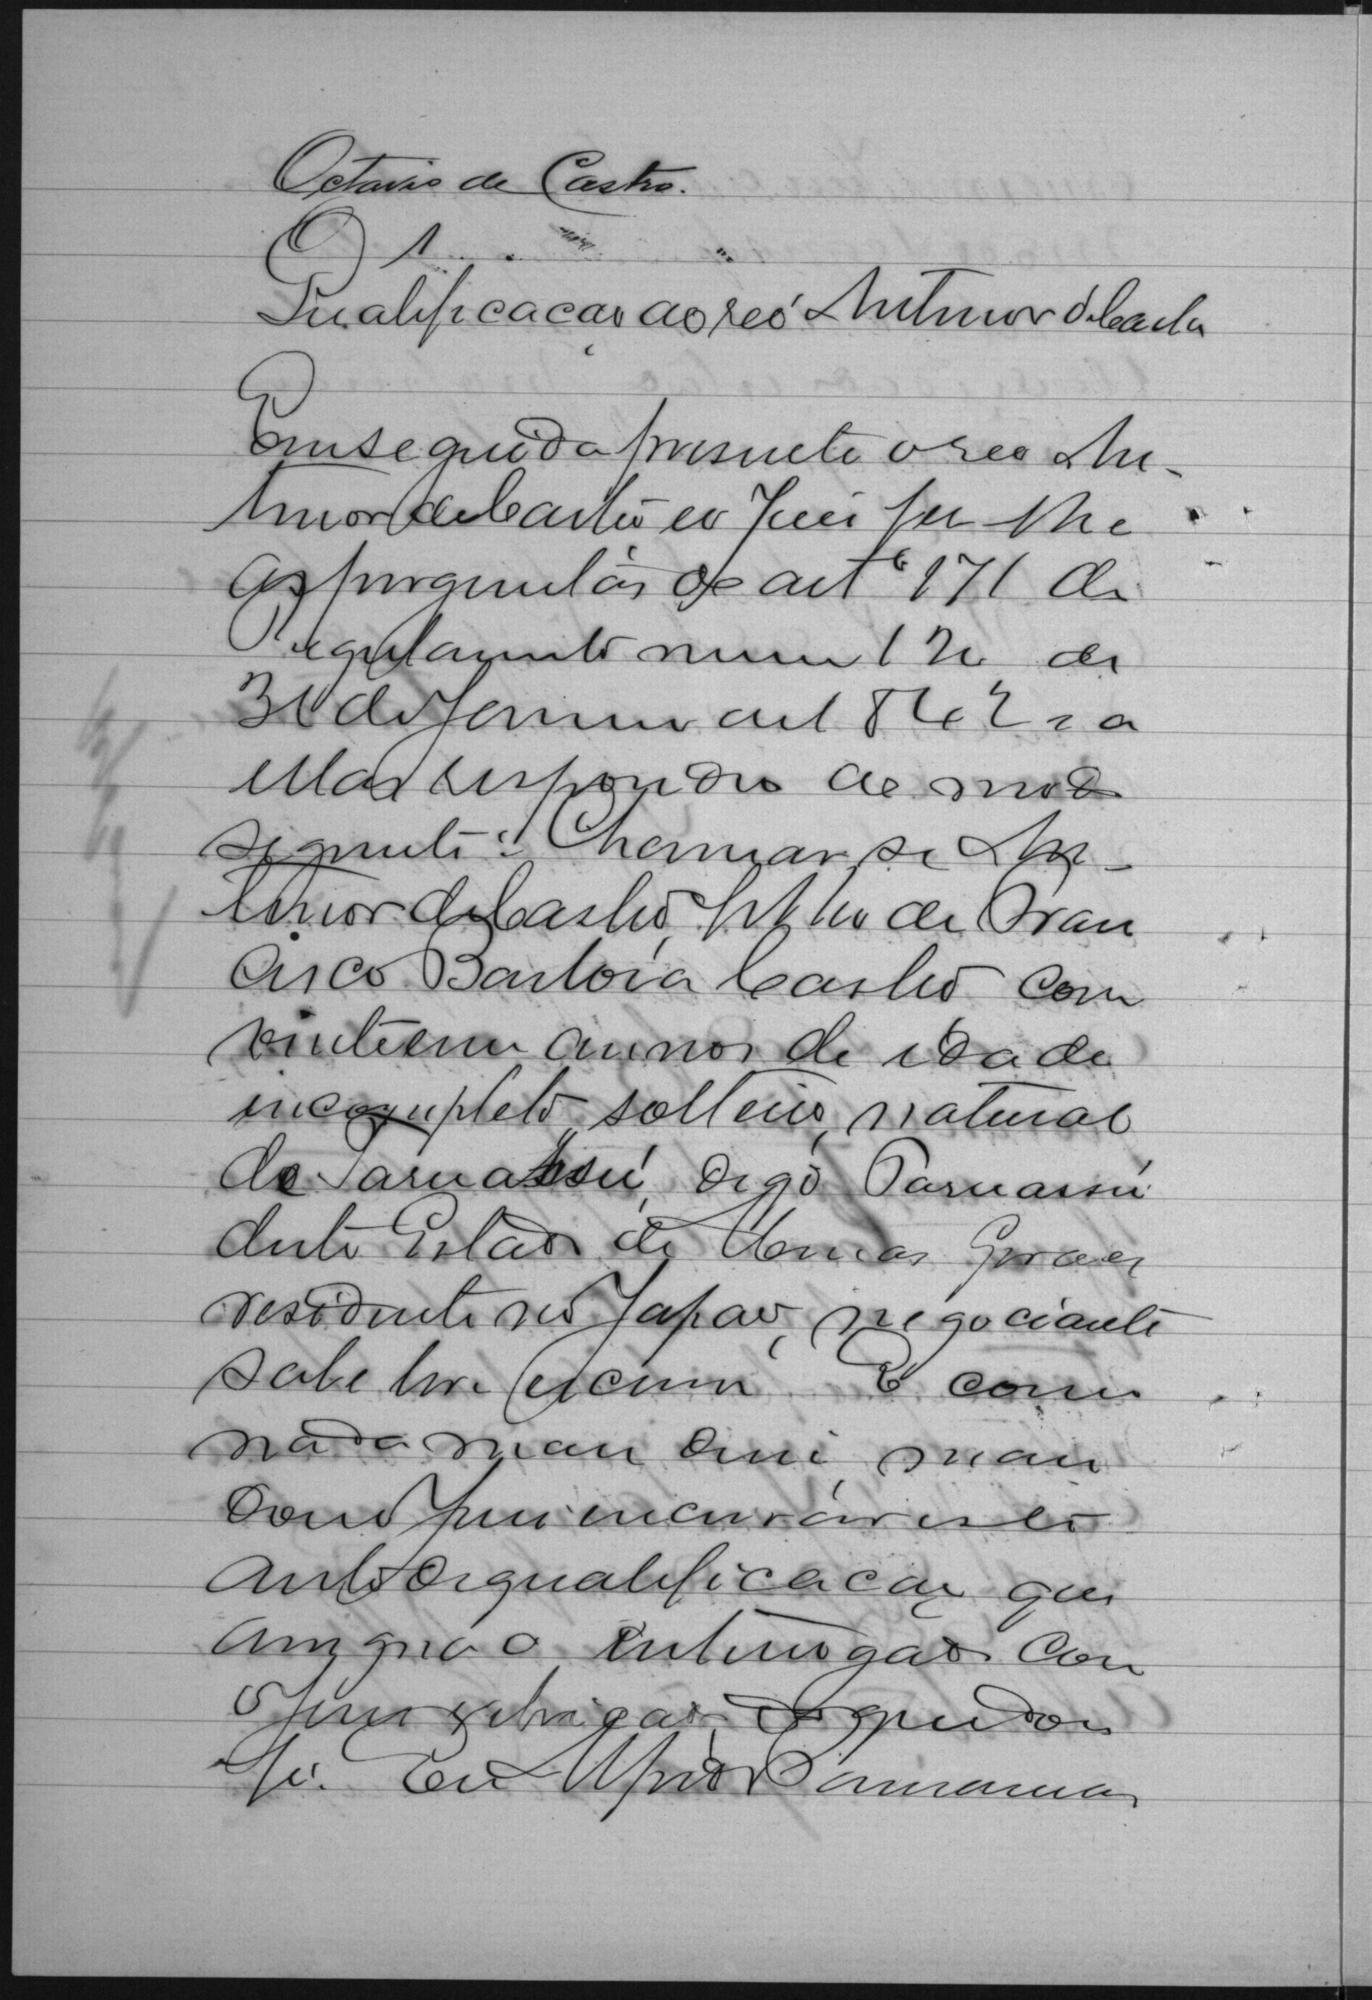 Octavio de Castro.
Qualificação ao reo Antenor de Castro
Em seguida presente o reo An-
tenor de Castro o Juiz fez lhe
as perguntas do artº 171 do
Regulamento num 120 de
31 de Janeiro de 1842 e a
ellas respondeu de modo
seguinte: Chamar se An-
tenor de Castro, filho de Fran
cisco Barboza Castro com
vinte e um annos de idade
incompleto, solteiro, natural
de Parnassú, digo Parnassú
deste Estado de Minas Geraes
residente no Japão, negociante
sabe ler e escrever E como
nada mais disse, man
dou o Juiz encerrar este
auto de qualificação que
assigna o interrogado com
o Juiz e dou
fé. Eu